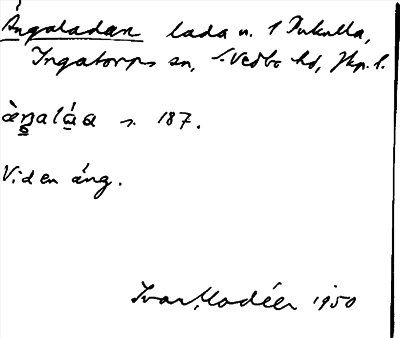 Ängaladan lada u. 1 Fukulla,
Ingatorps sn, S. Vedbo hd, Jkp. l.
s. 187.
Vid en äng.
Ivar Modéer 1950